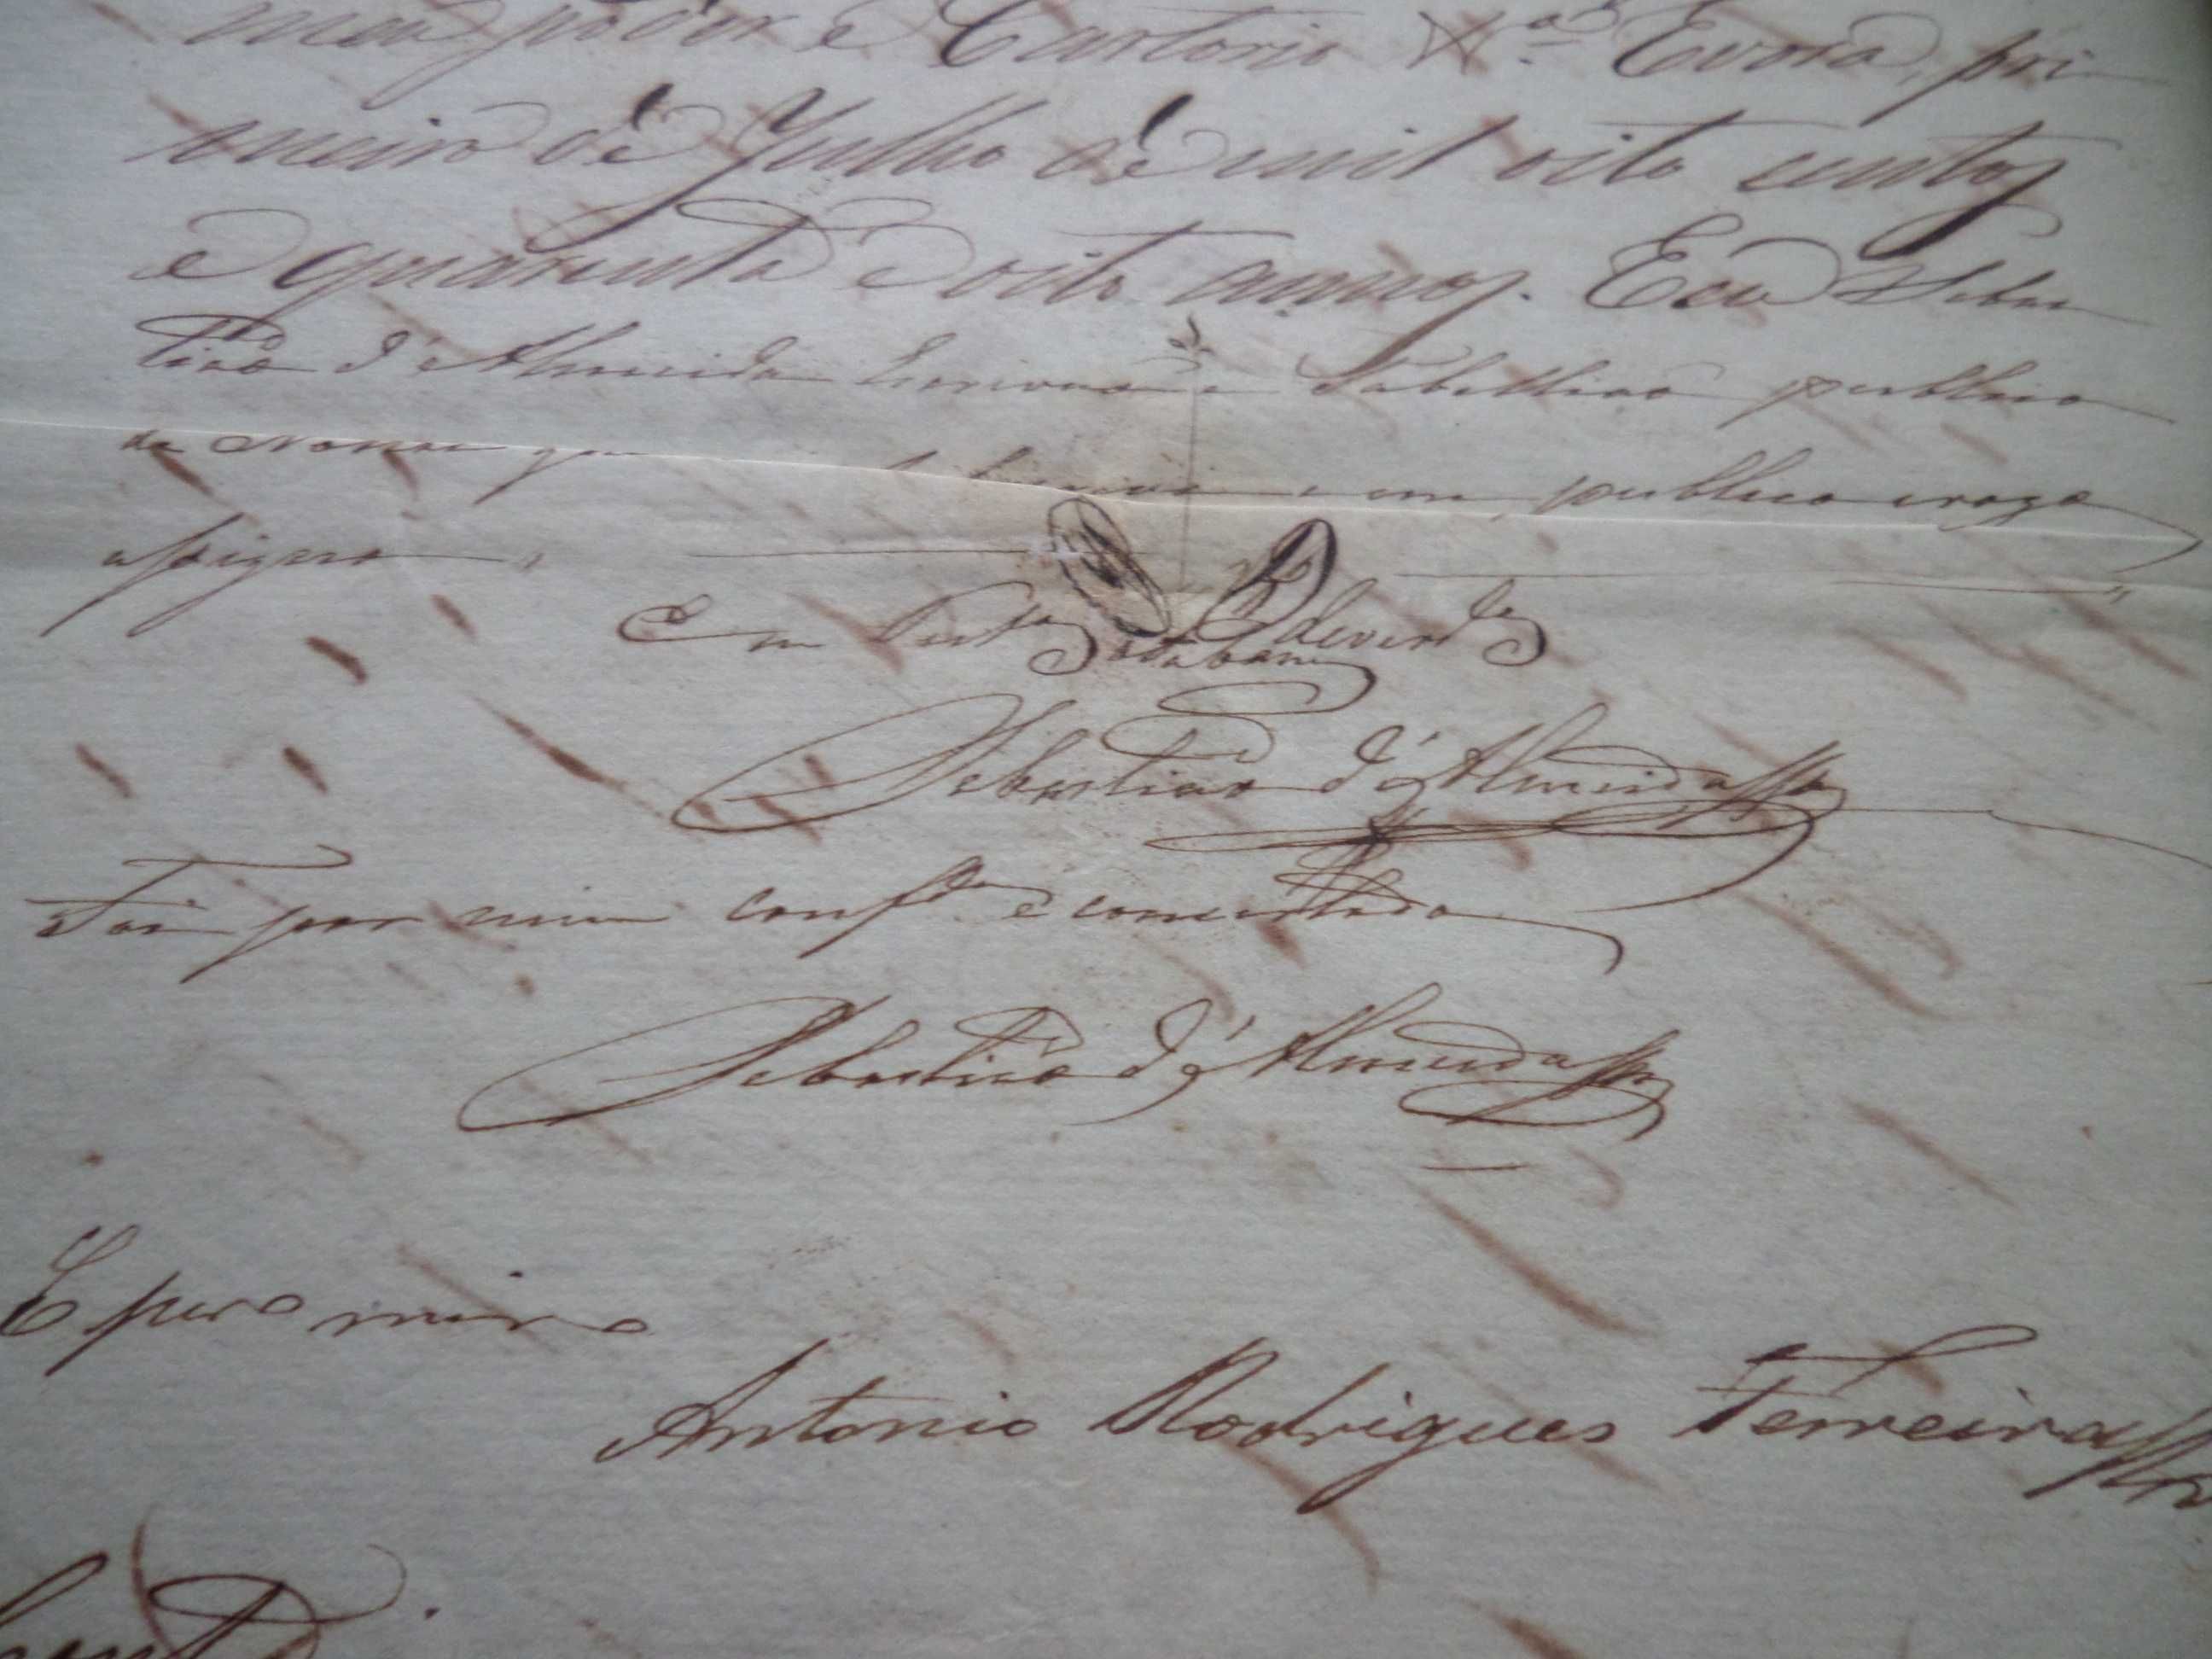 meu poder e Cartorio Evora, pri
meiro de Julho de mil oito centos
e quarenta e oito annos. Eu Sebas
tião d'Almeida Escrivão e Tabellião publico
de Nottas que em publico e razo
assigno
Em de verd.e
Sebastião d'Almeida
Foi por mim conf.da e concertada
Sebastião d'Almeida
E por mim
Antonio Rodrigues Ferreira